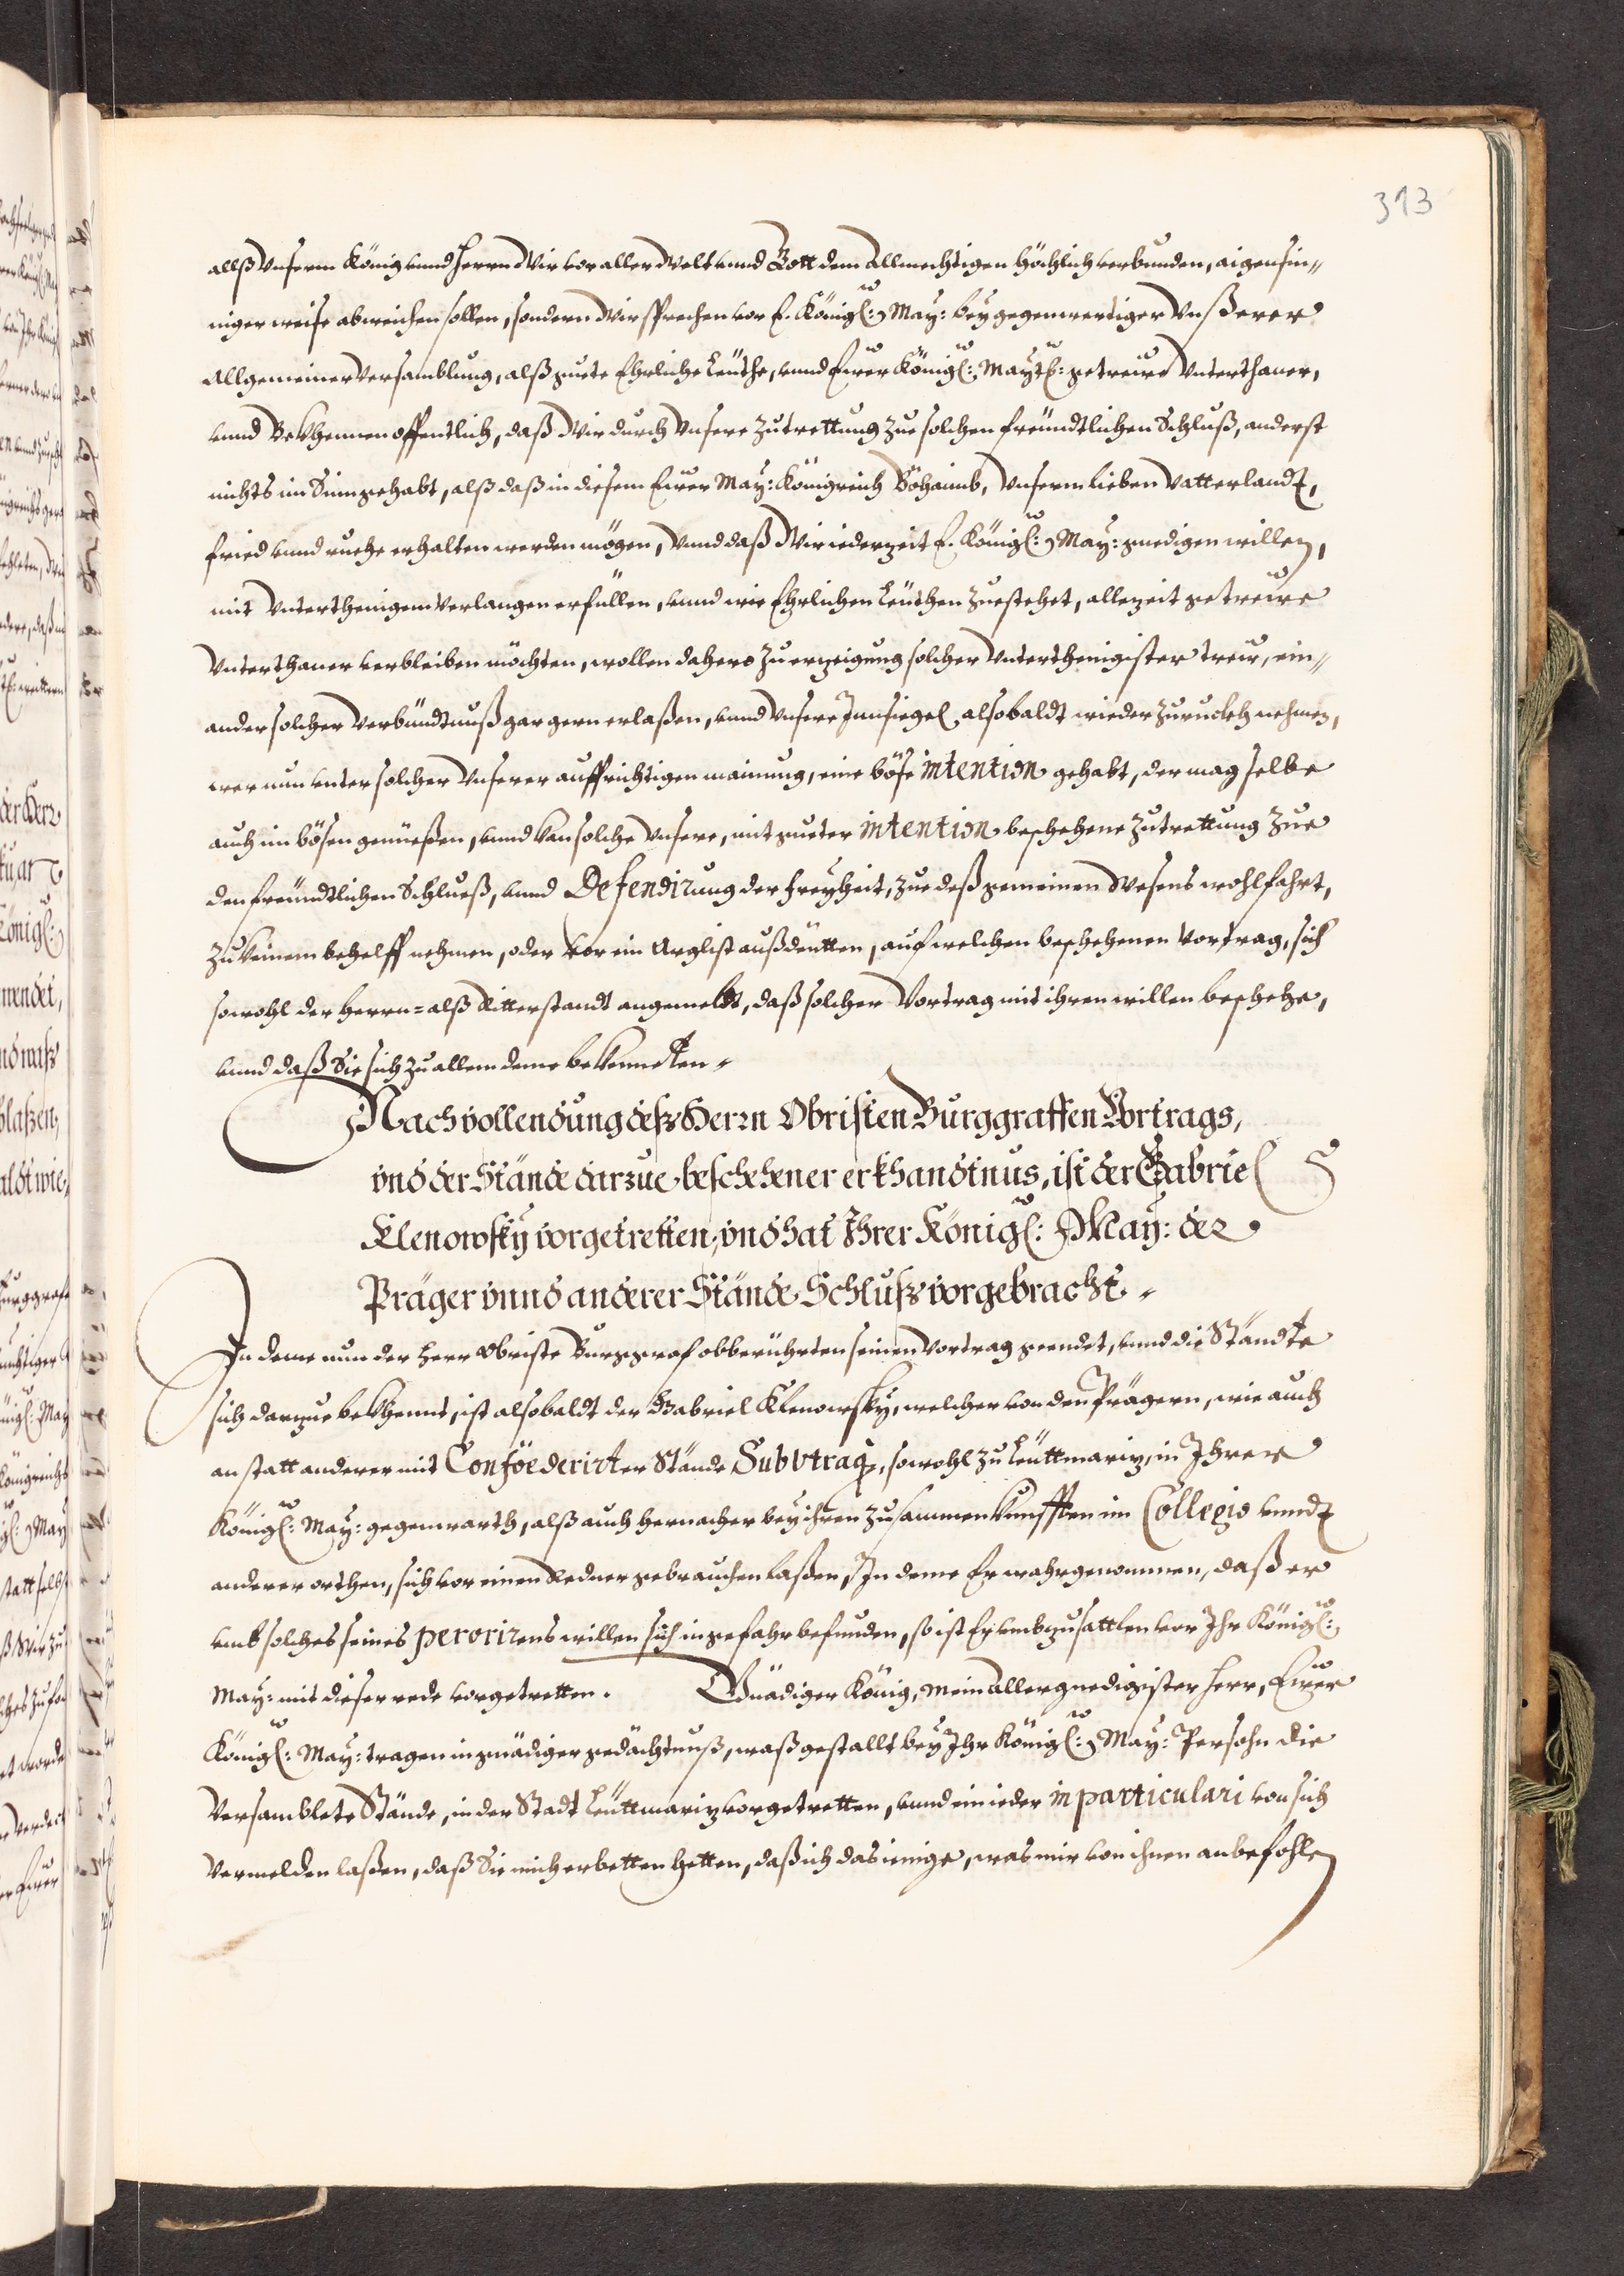 313
allß Vnserm König vnnd Herrn Wir vor aller Welt vnnd Gott dem Allmechtigen höchlich verbunden, aigensin„
niger weise abweichen sollen, sondern Wir sprechen vor E. Königl: May: bey gegenwertiger Vnßerer
Allgemeiner Versamblung, alß guete Ehrliche Leüthe, vnnd Eurer Königl: Maytl: getreüe Vnterthaner,
vnnd Bekhennen offentlich, daß Wir durch Vnsere Zutrettung Zue solchen freündtlichen Schluß, anderst
nichts im Sinn gehabt, alß daß in diesem Eurer May: Königreich Böhaimb, Vnserm lieben Vatterlandt,
fried vnnd ruehe erhalten werden mögen, Vnnd daß Wir iederzeit E. Königl: May: gnedigen willen,
mit Vnterthenigem Verlangen erfüllen, vnnd wie Ehrlichen Leüthen Zuestehet, allezeit getreüe
Vnterthaner verbleiben möchten, wollen dahero Zu erzeigung solcher Vnterthenigister treü, ein„
ander solcher Verbündtnuß gar gern erlaßen, vnnd Vnsere Innsiegel alsobaldt wieder Zuruckh nehmen,
wer nun vnter solcher Vnserer auffrichtigen mainung, eine böse intention gehabt, der mag selbe
auch im bösen genüeßen, vnnd kan solche Vnsere, mit gueter intention beschehene Zutrettung Zue
den freündtlichen Schlueß, vnnd Defendirung der freyheit, Zue deß gemeinen Wesens wohlfahrt,
Zu keinem behelff nehmen, oder vor ein Arglist außdeütten, auf welchen beschehenen Vortrag, sich
sowohl der Herrn= alß Ritterstandt angemeldt, daß solcher Vortrag mit ihren willen beschehe,
vnnd daß Sie sich Zu allem deme bekenneten„
Nach vollendung deß Herrn Obristen Burggraffen Vortrags,
vnd der Stände darzue beschehener erkhandtnus, ist der Gabriel
Klenowsky vorgetretten, vnd hat Ihrer Königl: May: der
Präger vnnd anderer Stände Schluß vorgebracht„
In deme nun der Herr Obriste Burggraf obberührten seinen Vortrag geendet, vnnd die Ständte
sich darzue bekhennt, ist alsobaldt der Gabriel Klenowsky, welcher von den Prägern, wie auch
an statt anderer mit Conföederirter Stände Subvtraq, sowohl zu Leüttmariz, in Ihrer
Königl: May: gegenwarth, alß auch hernacher bey ihren Zusammenkunfften im Collegio vnndt
anderer orthen, sich vor einen Redner gebrauchen laßen, In deme Er wahrgenommen, daß er
vmb solches seines perorirens willen sich in gefahr befunden, so ist Er vmbzusattlen vor Ihr Königl:
May: mit dieser rede vorgetretten. Gnädiger König, mein Allergnedigister Herr, Eurer
Königl: May: tragen in gnädiger gedächtnuß, waß gestallt bey Ihr Königl: May: Persohn die
Versamblete Stände, in der Stadt Leüttmariz vorgetretten, vnnd ein ieder in particulari von sich
Vermelden laßen, daß Sie mich erbetten hetten, daß ich das ienige, was mir von ihnen anbefohlen